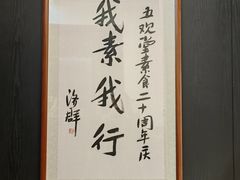 五观堂素食二十周年庆
我素我行